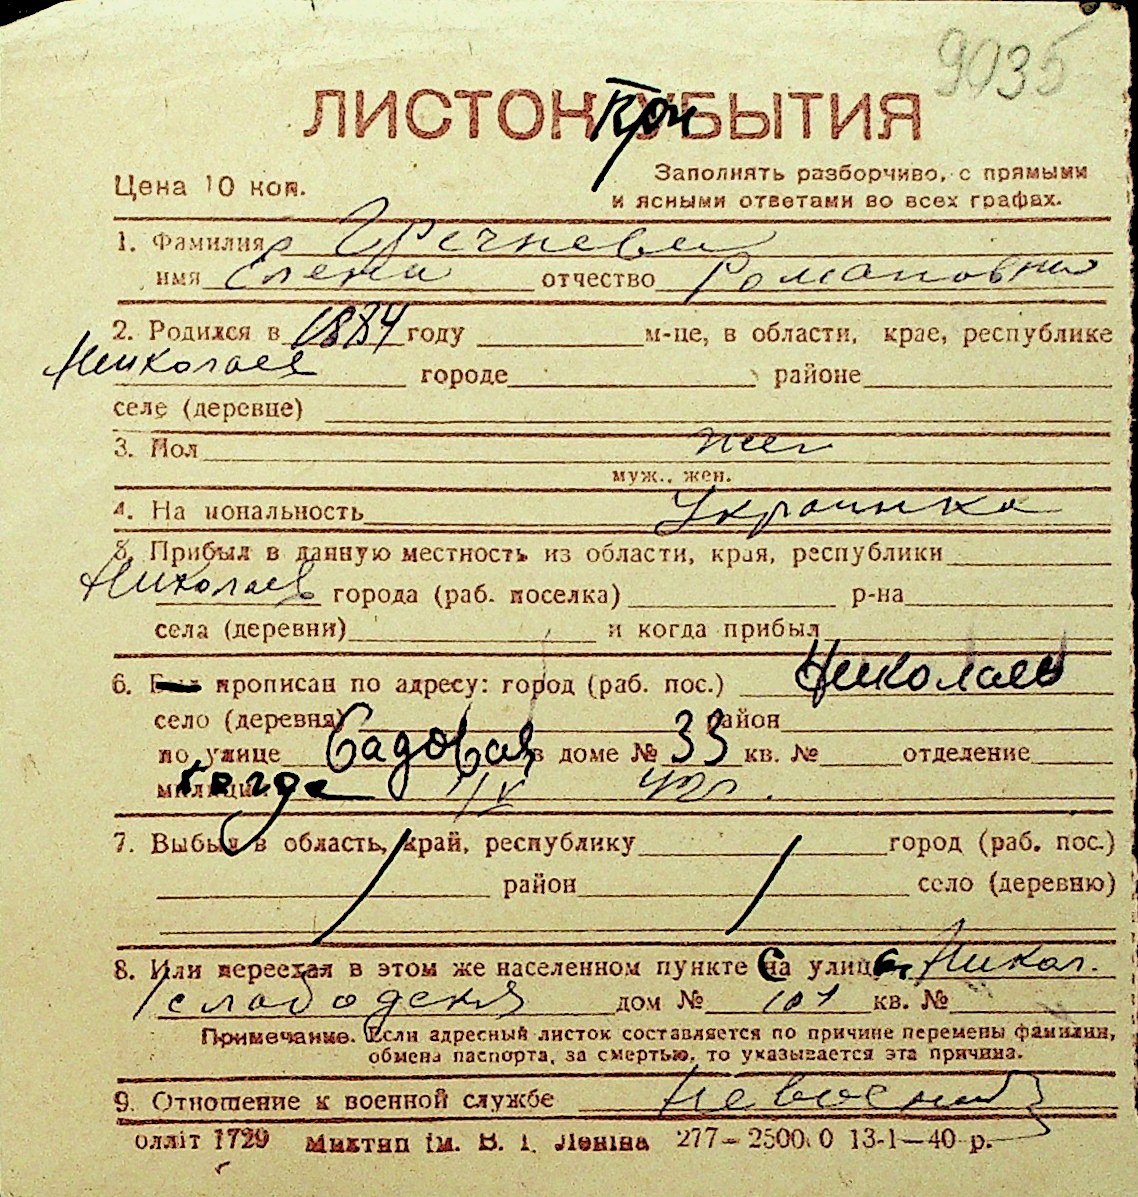 9035
ЛИСТОК УБЫТИЯ
При
Цена 10 коп.
Заполнять разборчиво, с прямыми
и ясными ответами во всех графах.
1. Фамилия Гречнева
имя Елена отчество Романовна
2. Родился в 1884 году м-це, в области, крае, республике
Николаев городе районе
селе (деревне)
3. Пол жен
муж., жен.
4. На иональность Украинка
5. Прибыл в данную местность из области, края, республики
Николаев города (раб. поселка) р-на
села (деревни) и когда прибыл
6. прописан по адресу: город (раб. пос.) Николаев
село (деревня) район
по улице Садовая в доме № 33 кв. № отделение
милиции когда IV 42г.
7. Выбыл в область, край, республику город (раб. пос.)
район село (деревню)
8. Или переехал в этом же населенном пункте с улицы Никол.
слободская дом № 101 кв. №
Примечание. Если адресный листок составляется по причине перемены фамилии,
обмена паспорта, за смертью, то указывается эта причина.
9. Отношение к военной службе
олліт 1729 Миктип ім. В. І. Леніна 277—2500 0 13-1—40 р.